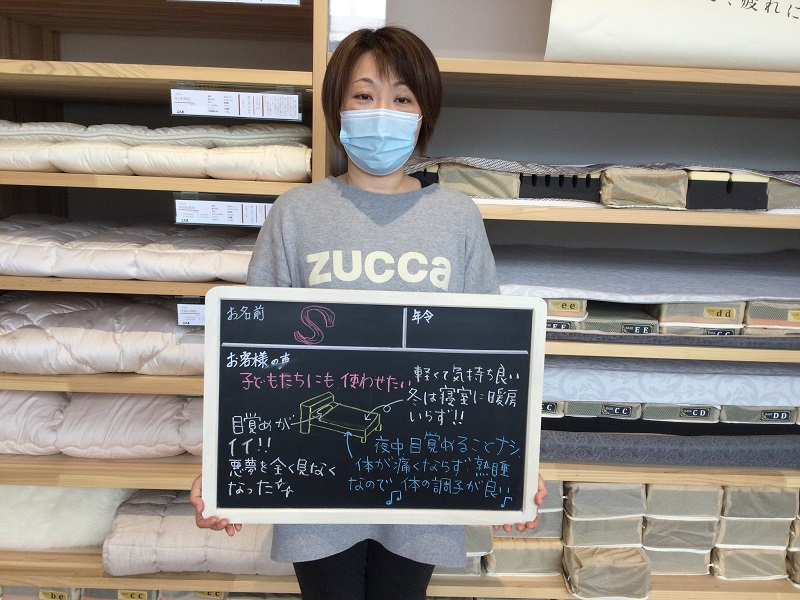 、疲れに
zucca
お名前
S
年令
お客様の声
子どもたちにも使わせたい
軽くて気持ち良い
冬は寝室に暖房
いらず!!
目覚めが
イイ!!
悪夢を全く見なく
なったナ
夜中目覚めることナシ
体が痛くならず熟睡
なので体の調子が良い
ee
dd
EE
EE
EE
CC
CC
CD
DD
be
cc